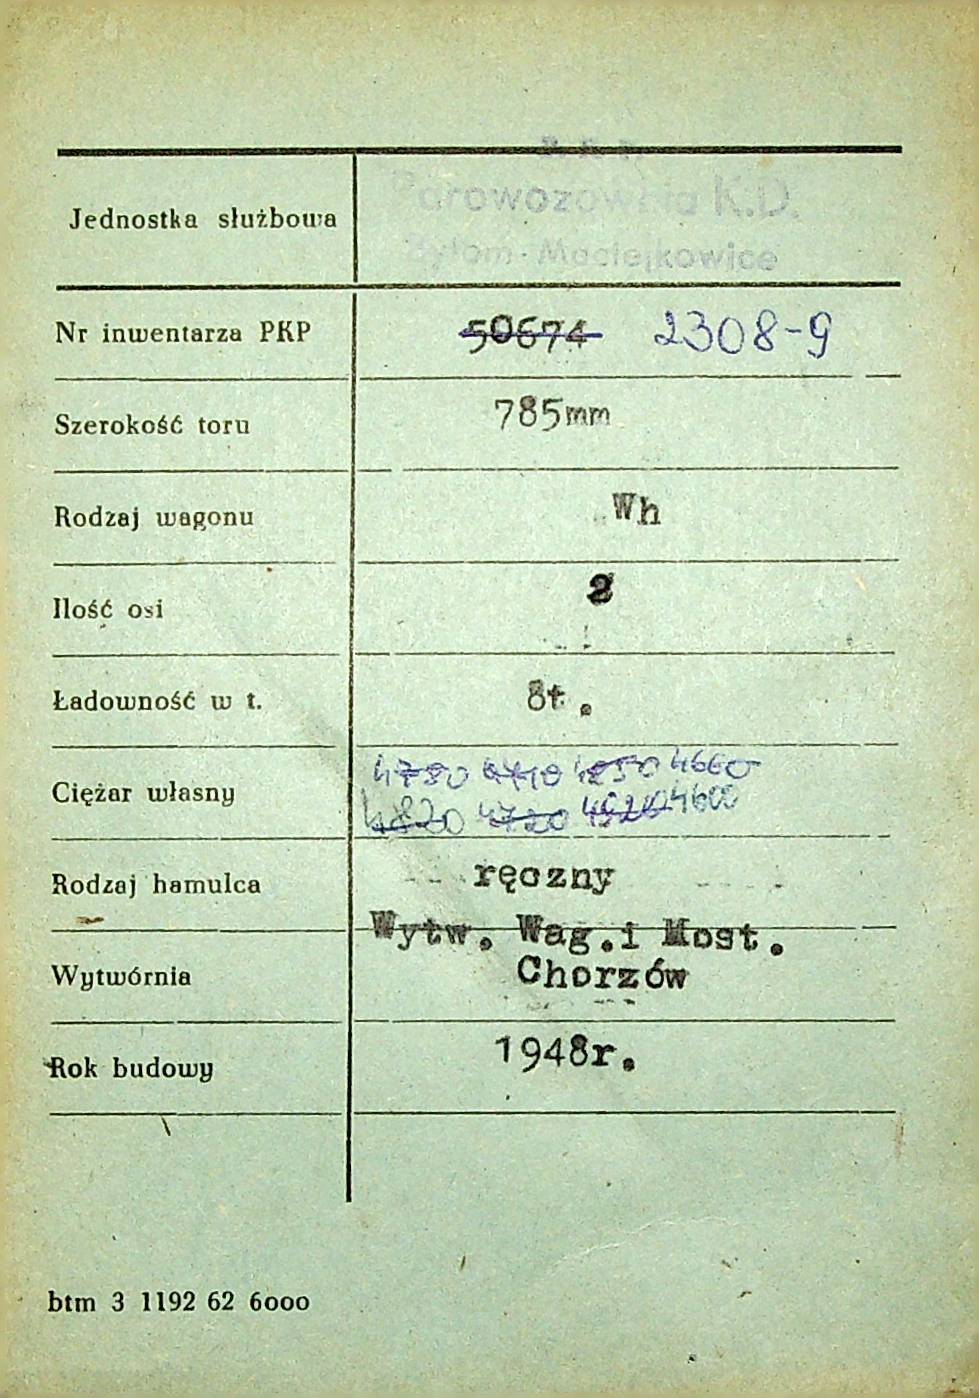 P.K.P.
Parowozownia K.D.
Bytom-Maciejkowice
Jednostka służbowa
Nr inwentarza PKP 50674 2308-9
Szerokość toru 785mm
Rodzaj wagonu Wh
Ilość osi 2
Ładowność w t. 8t.
4780 4710 4850 4660
Ciężar własny
4820 4720 4600
Rodzaj hamulca ręczny
Wytw. Wag.i Most.
Wytwórnia Chorzów
Rok budowy 1948r.
btm 3 1192 62 6ooo